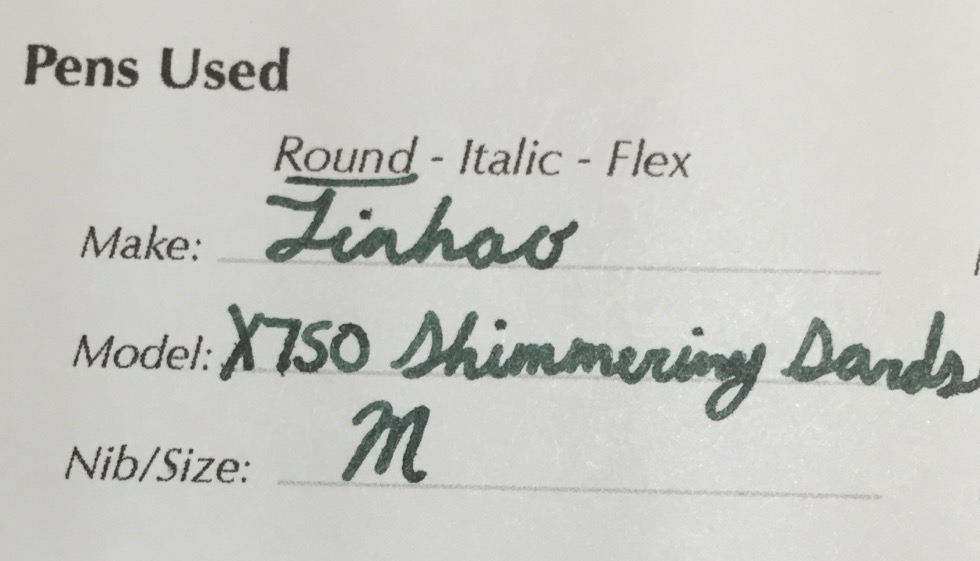 Pens Used
Round - Italic - Flex
Make: Jinhao
Model: X750 Shimmering Sands
Nib/Size: M